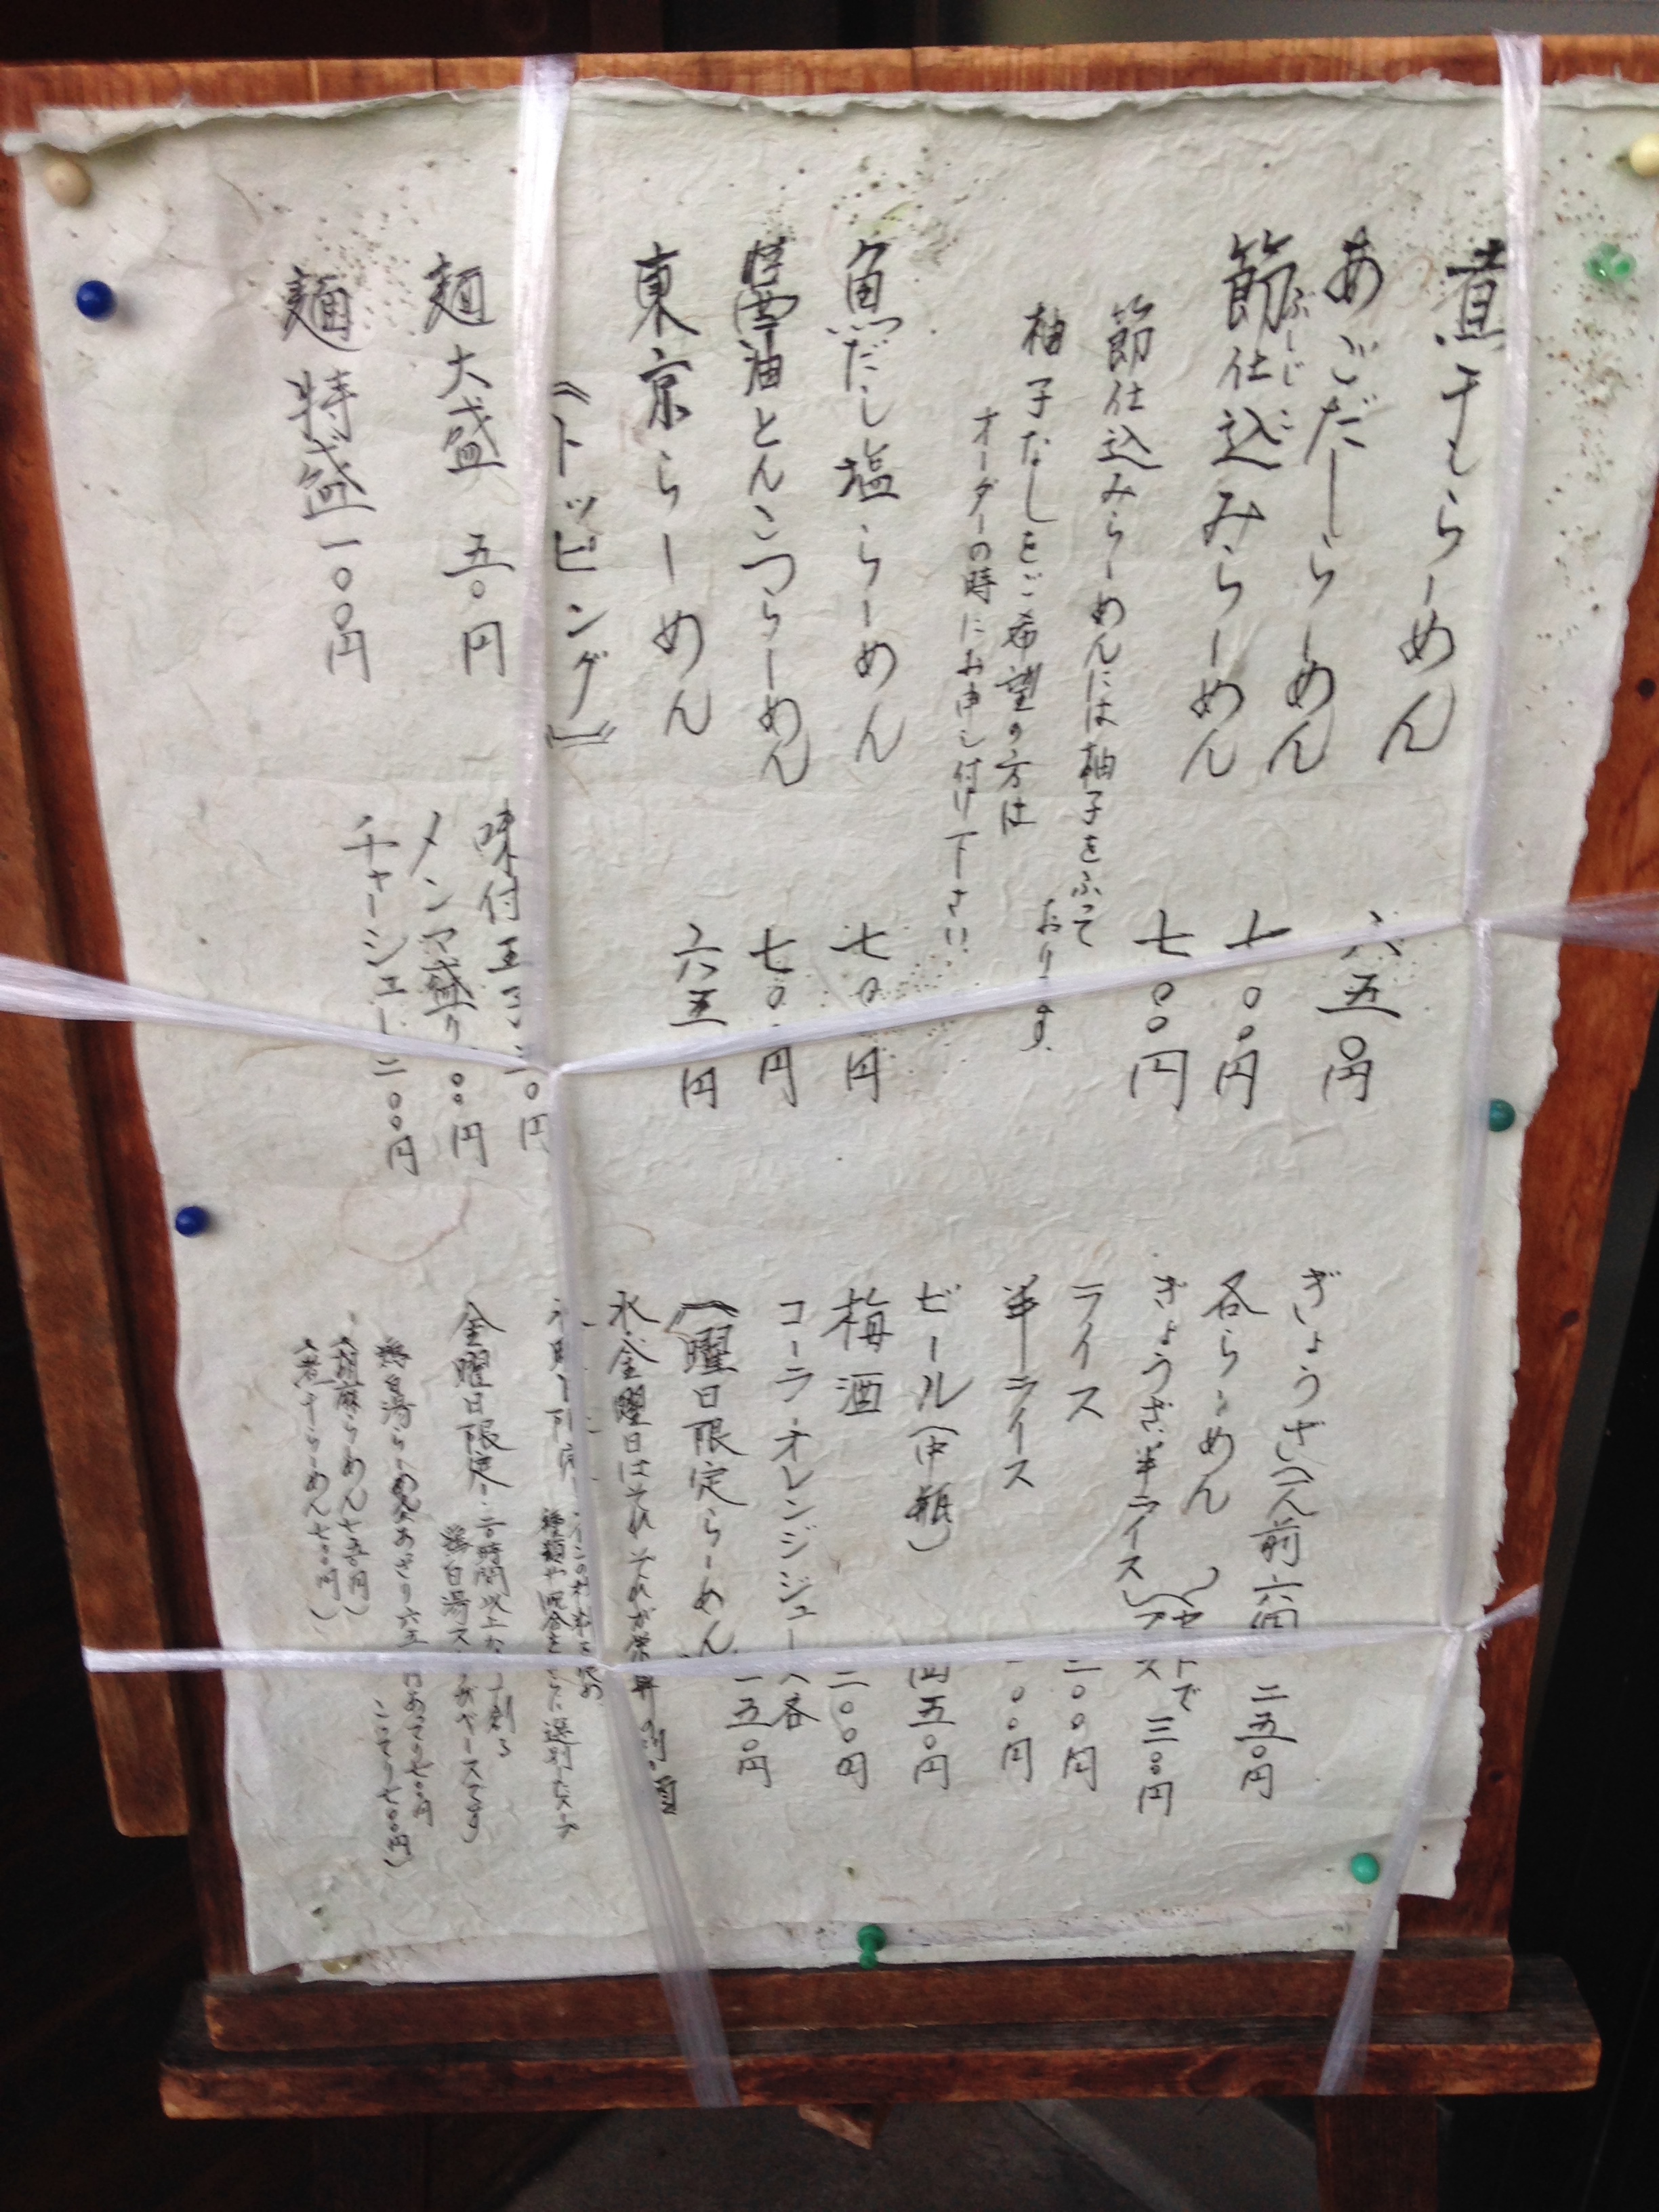 煮干しらーめん 六五〇円
あごだしらーめん 七〇〇円
節仕込みらーめん 七〇〇円
ぶしじこ
節仕込みらーめんには柚子をふって
おります
柚子なしをご希望の方は
オーダーの時にお申し付け下さい
魚だし塩らーめん 七〇〇円
醤油とんこつらーめん 七〇〇円
東京らーめん 六五 円
《トッピング》
麺大盛 五〇円
麺特盛 一〇〇円
味付玉子 円
メンマ盛り 円
チャーシュー 二〇〇円
ぎょうざ(一人前六個) 二五〇円
各らーめん
ぎょうざ・半ライス
セットで
三〇〇円
ライス 二〇〇円
半ライス 一〇〇円
ビール(中瓶) 四五〇円
梅酒 二〇〇円
コーラ・オレンジジュース各
一五〇円
《曜日限定らーめん
水・金曜日はそれぞれが
種類や配合をさらに選別したスープ
金曜日限定 二〇時間以上
鶏白湯 がベースです
鶏白湯らーめん あさり六五 円
こってり七〇〇円)
胡麻らーめん七五〇円)
煮干らーめん七〇〇円)